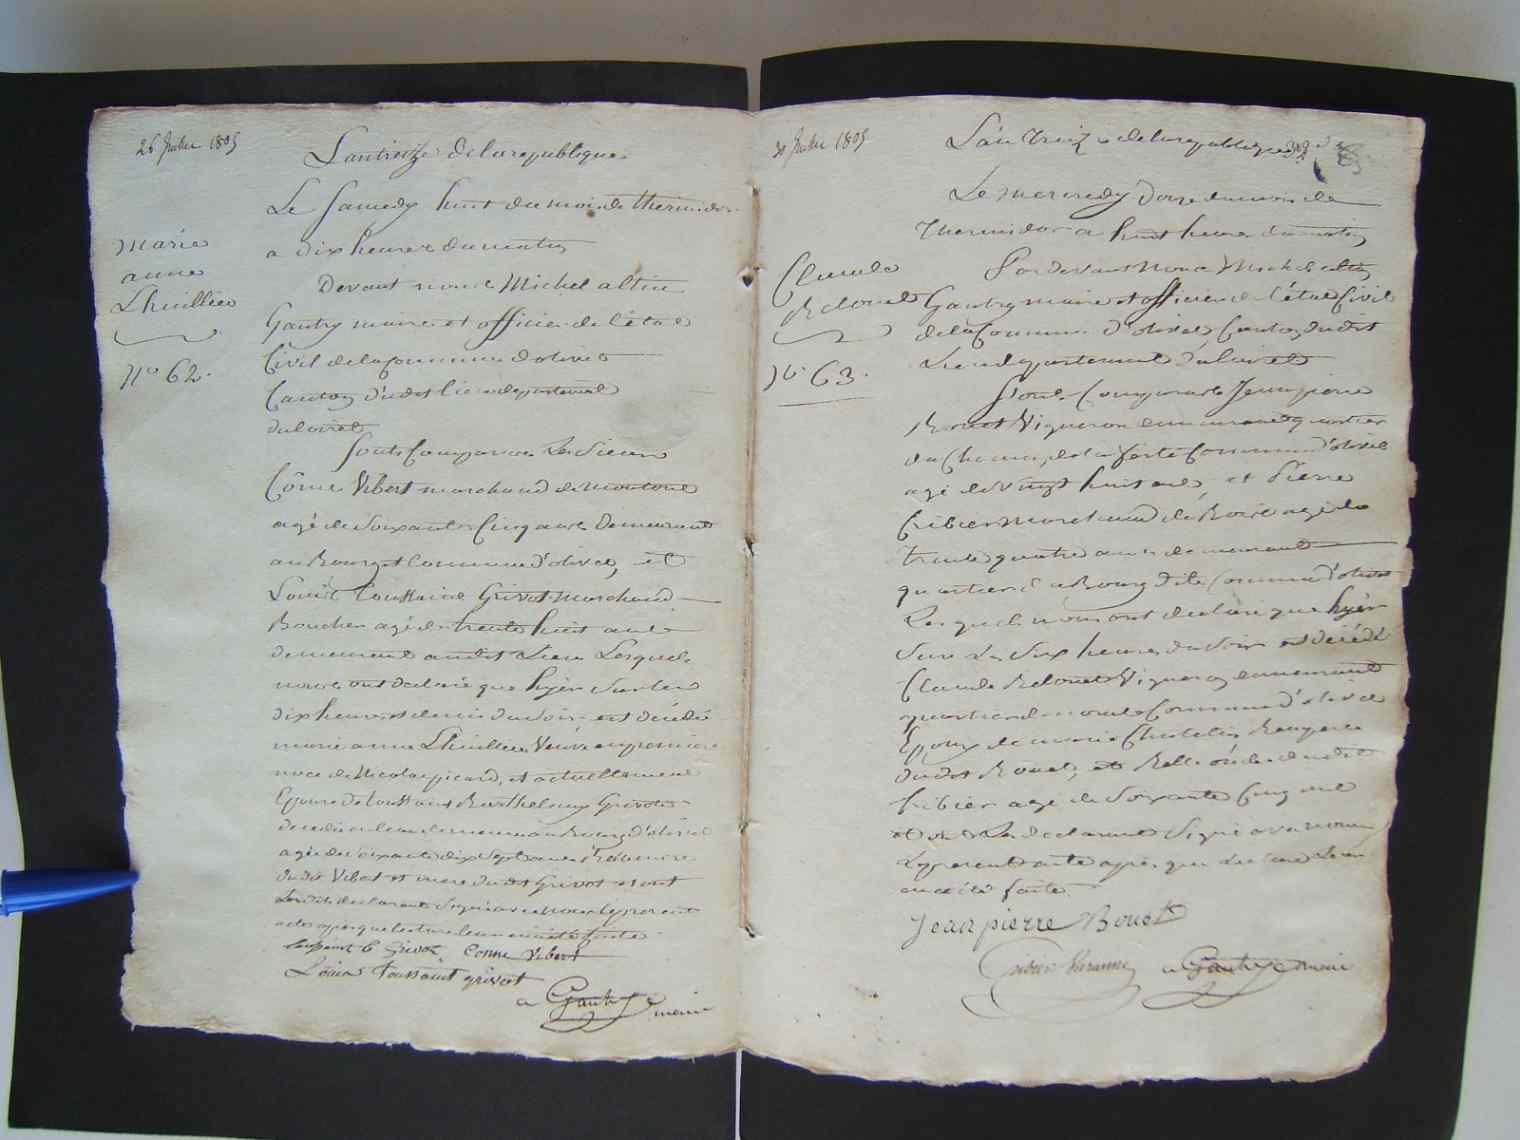 26 Juillet 1805
L'an treize de la republique
Le Samedy huit du mois de thermidor
a dix heures du matin
marie
anne
Lhuillier
Devant nous Michel altin
Gautry maire et officier de l'état
Civil de la Commune d'olivet
Canton dudit lieu departement
N° 62.
du loiret
Sont Comparus Les Sieurs
Côme Vibert marchand de moutons
agé de Soixante Cinq ans demeurant
au Bourg et Commune d'olivet, et
Louis Toussaint Grivot marchand
Boucher agé de trente huit ans
demeurant audit Lieu Lesquels
nous ont declaré que hyer Sur les
dix heures et demie du Soir est décédé
marie anne Lhuillier Veuve en premiere
noce de Nicolas picard, et actuellement
Epouse de toussaint Barthelemy Grivot
decedée en sa demeure au Bourg d'olivet
agée de Soixante dix Sept ans Belle mere
dudit Vibert et mere dudit Grivot et ont
Lesdits declarants Signé avec nous le present
acte apres que lecture leur en a été faite
toussaint b Grivot Come Vibert
Louis toussaint grivot
a Gautry maire
30 Juillet 1805
L'an treize de la republique
Le mercredy Onze du mois de
thermidor a huit heures du matin
Claude
Rebouet
Par devant Nous Michel altin
Gautry maire et officier de l'état Civil
de la Commune d'olivet Canton dudit
Lieu departement du loiret
N° 63.
Sont Comparus Jean pierre
Bouet Vigneron demeurant quartier
du Champ de la ferte Commune d'olivet
agé de Vingt huit ans et Pierre
Cribier Marchand de Bois agé de
trente quatre ans demeurant
quartier du Bourg dite Commune d'olivet
Lesquels nous ont declaré que hyer
Sur Les Six heures du Soir est décédé
Claude Rebouet Vigneron demeurant
quartier de Commune d'olivet
Epoux de marie Chatelin Beaupere
dudit Bouet, et dudit
Cribier agé de Soixante Cinq ans
et ont Les declarants Signé avec nous
Le present acte apres que Lecture Leur
en a été faite
Jean pierre Bouet
Cribier
a Gautry maire